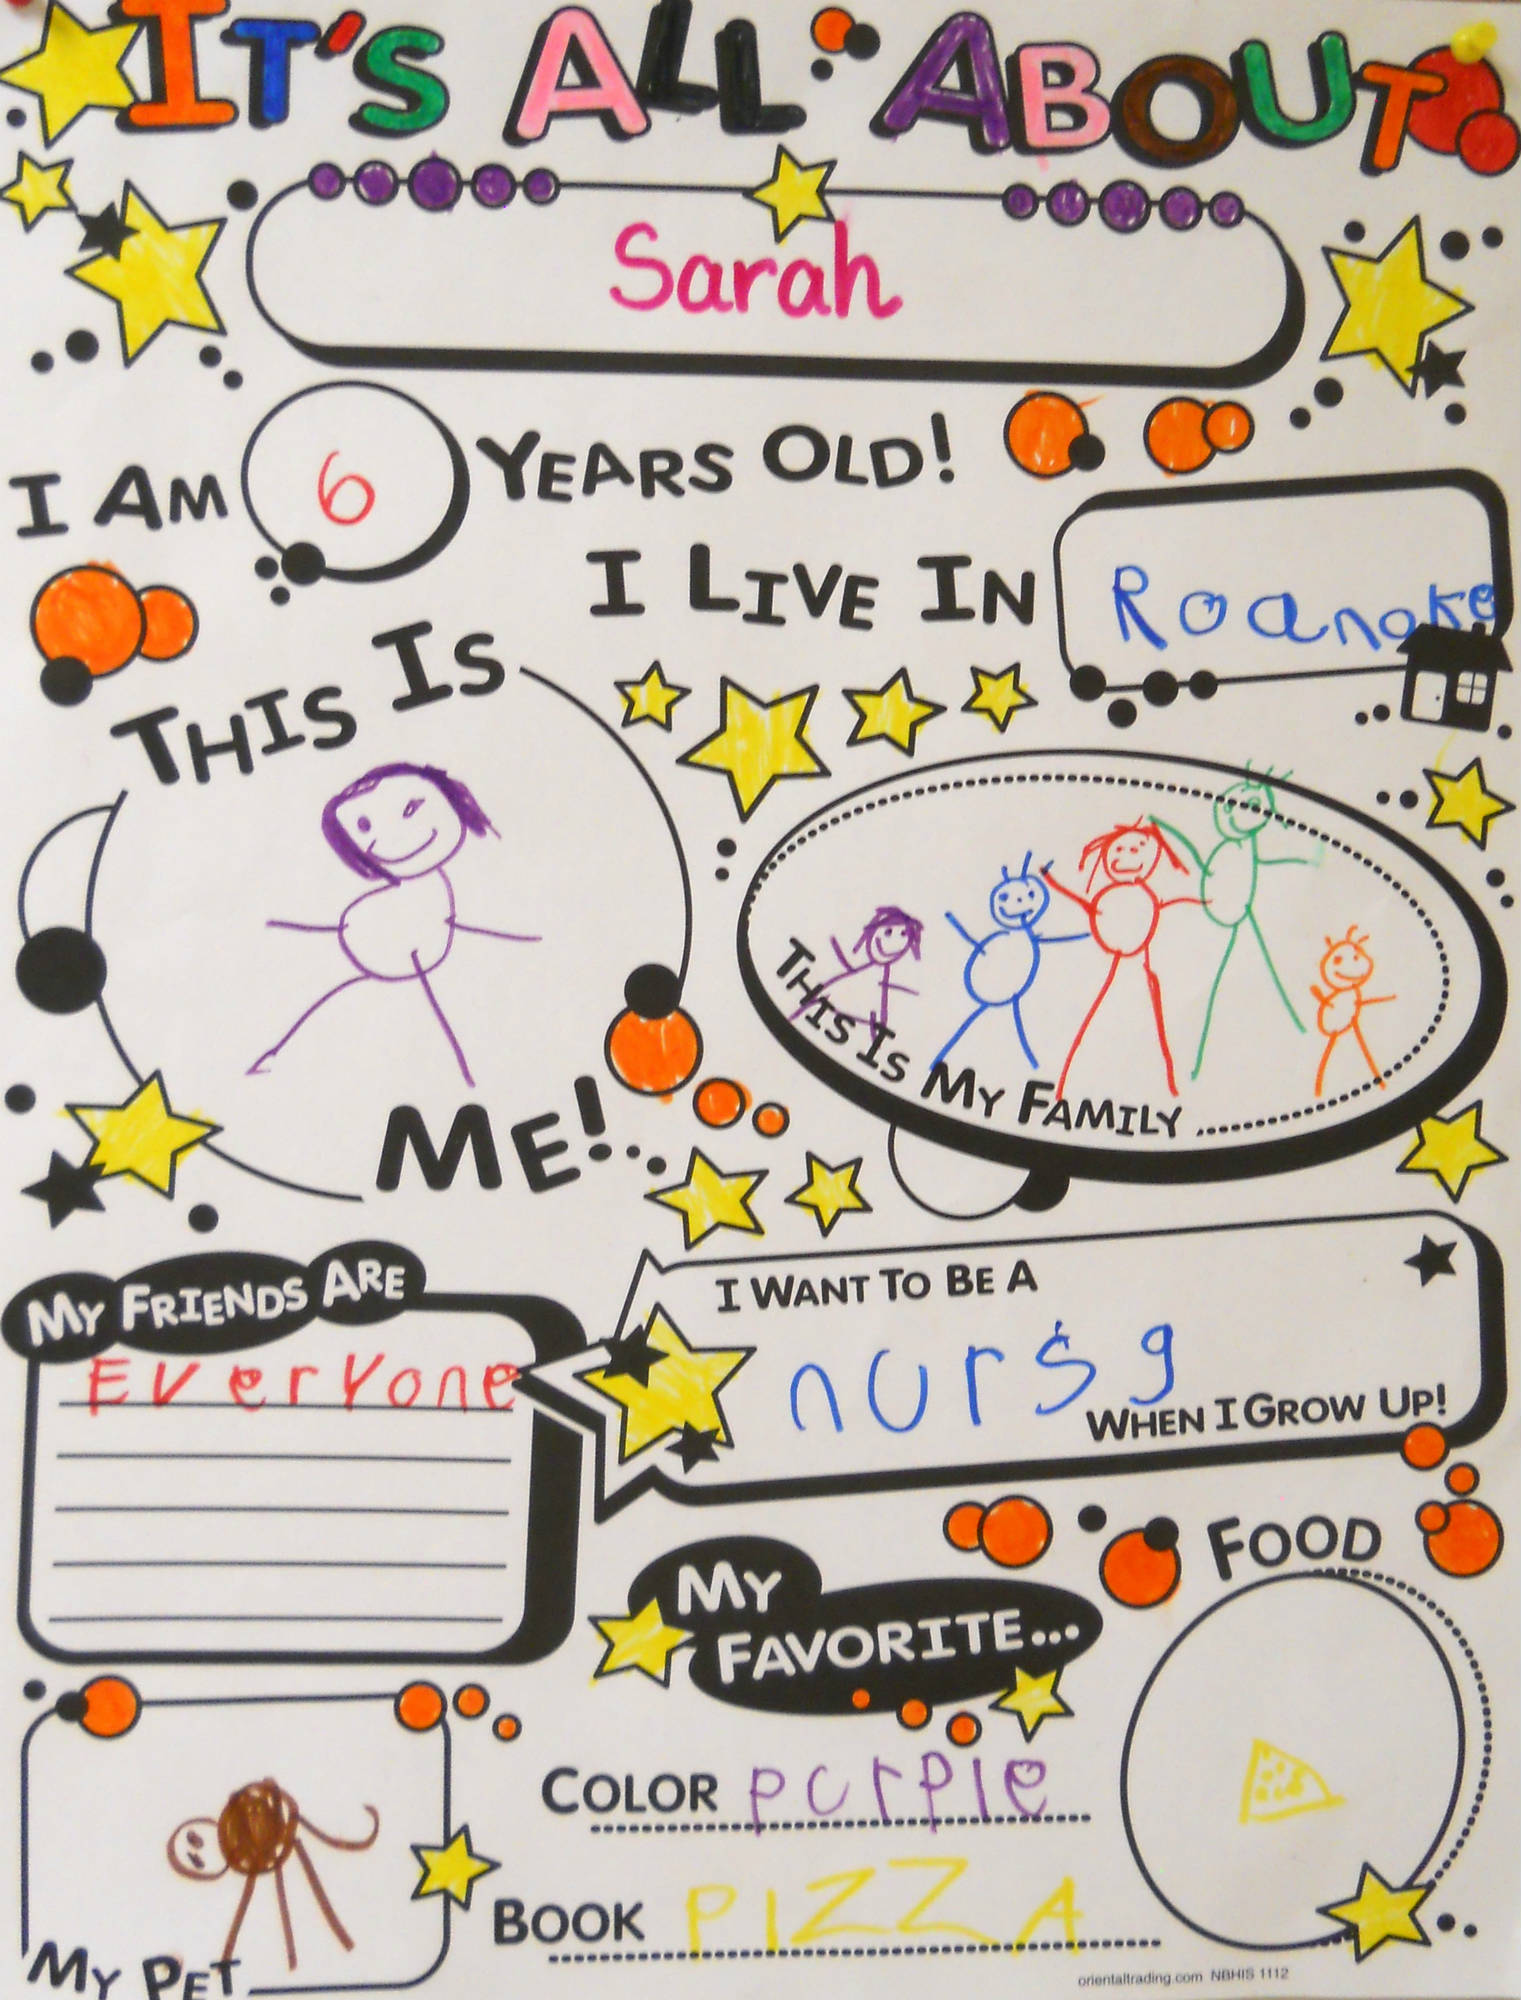 IT'S ALL ABOUT
Sarah
I AM 6 YEARS OLD!
I LIVE IN Roanoke
THIS IS
ME!
THIS IS MY FAMILY
MY FRIENDS ARE
Everyone
I WANT TO BE A
nurse
WHEN I GROW UP!
MY
FAVORITE...
FOOD
COLOR purple
BOOK PIZZA
MY PET
orientaltrading.com NBHIS 1112